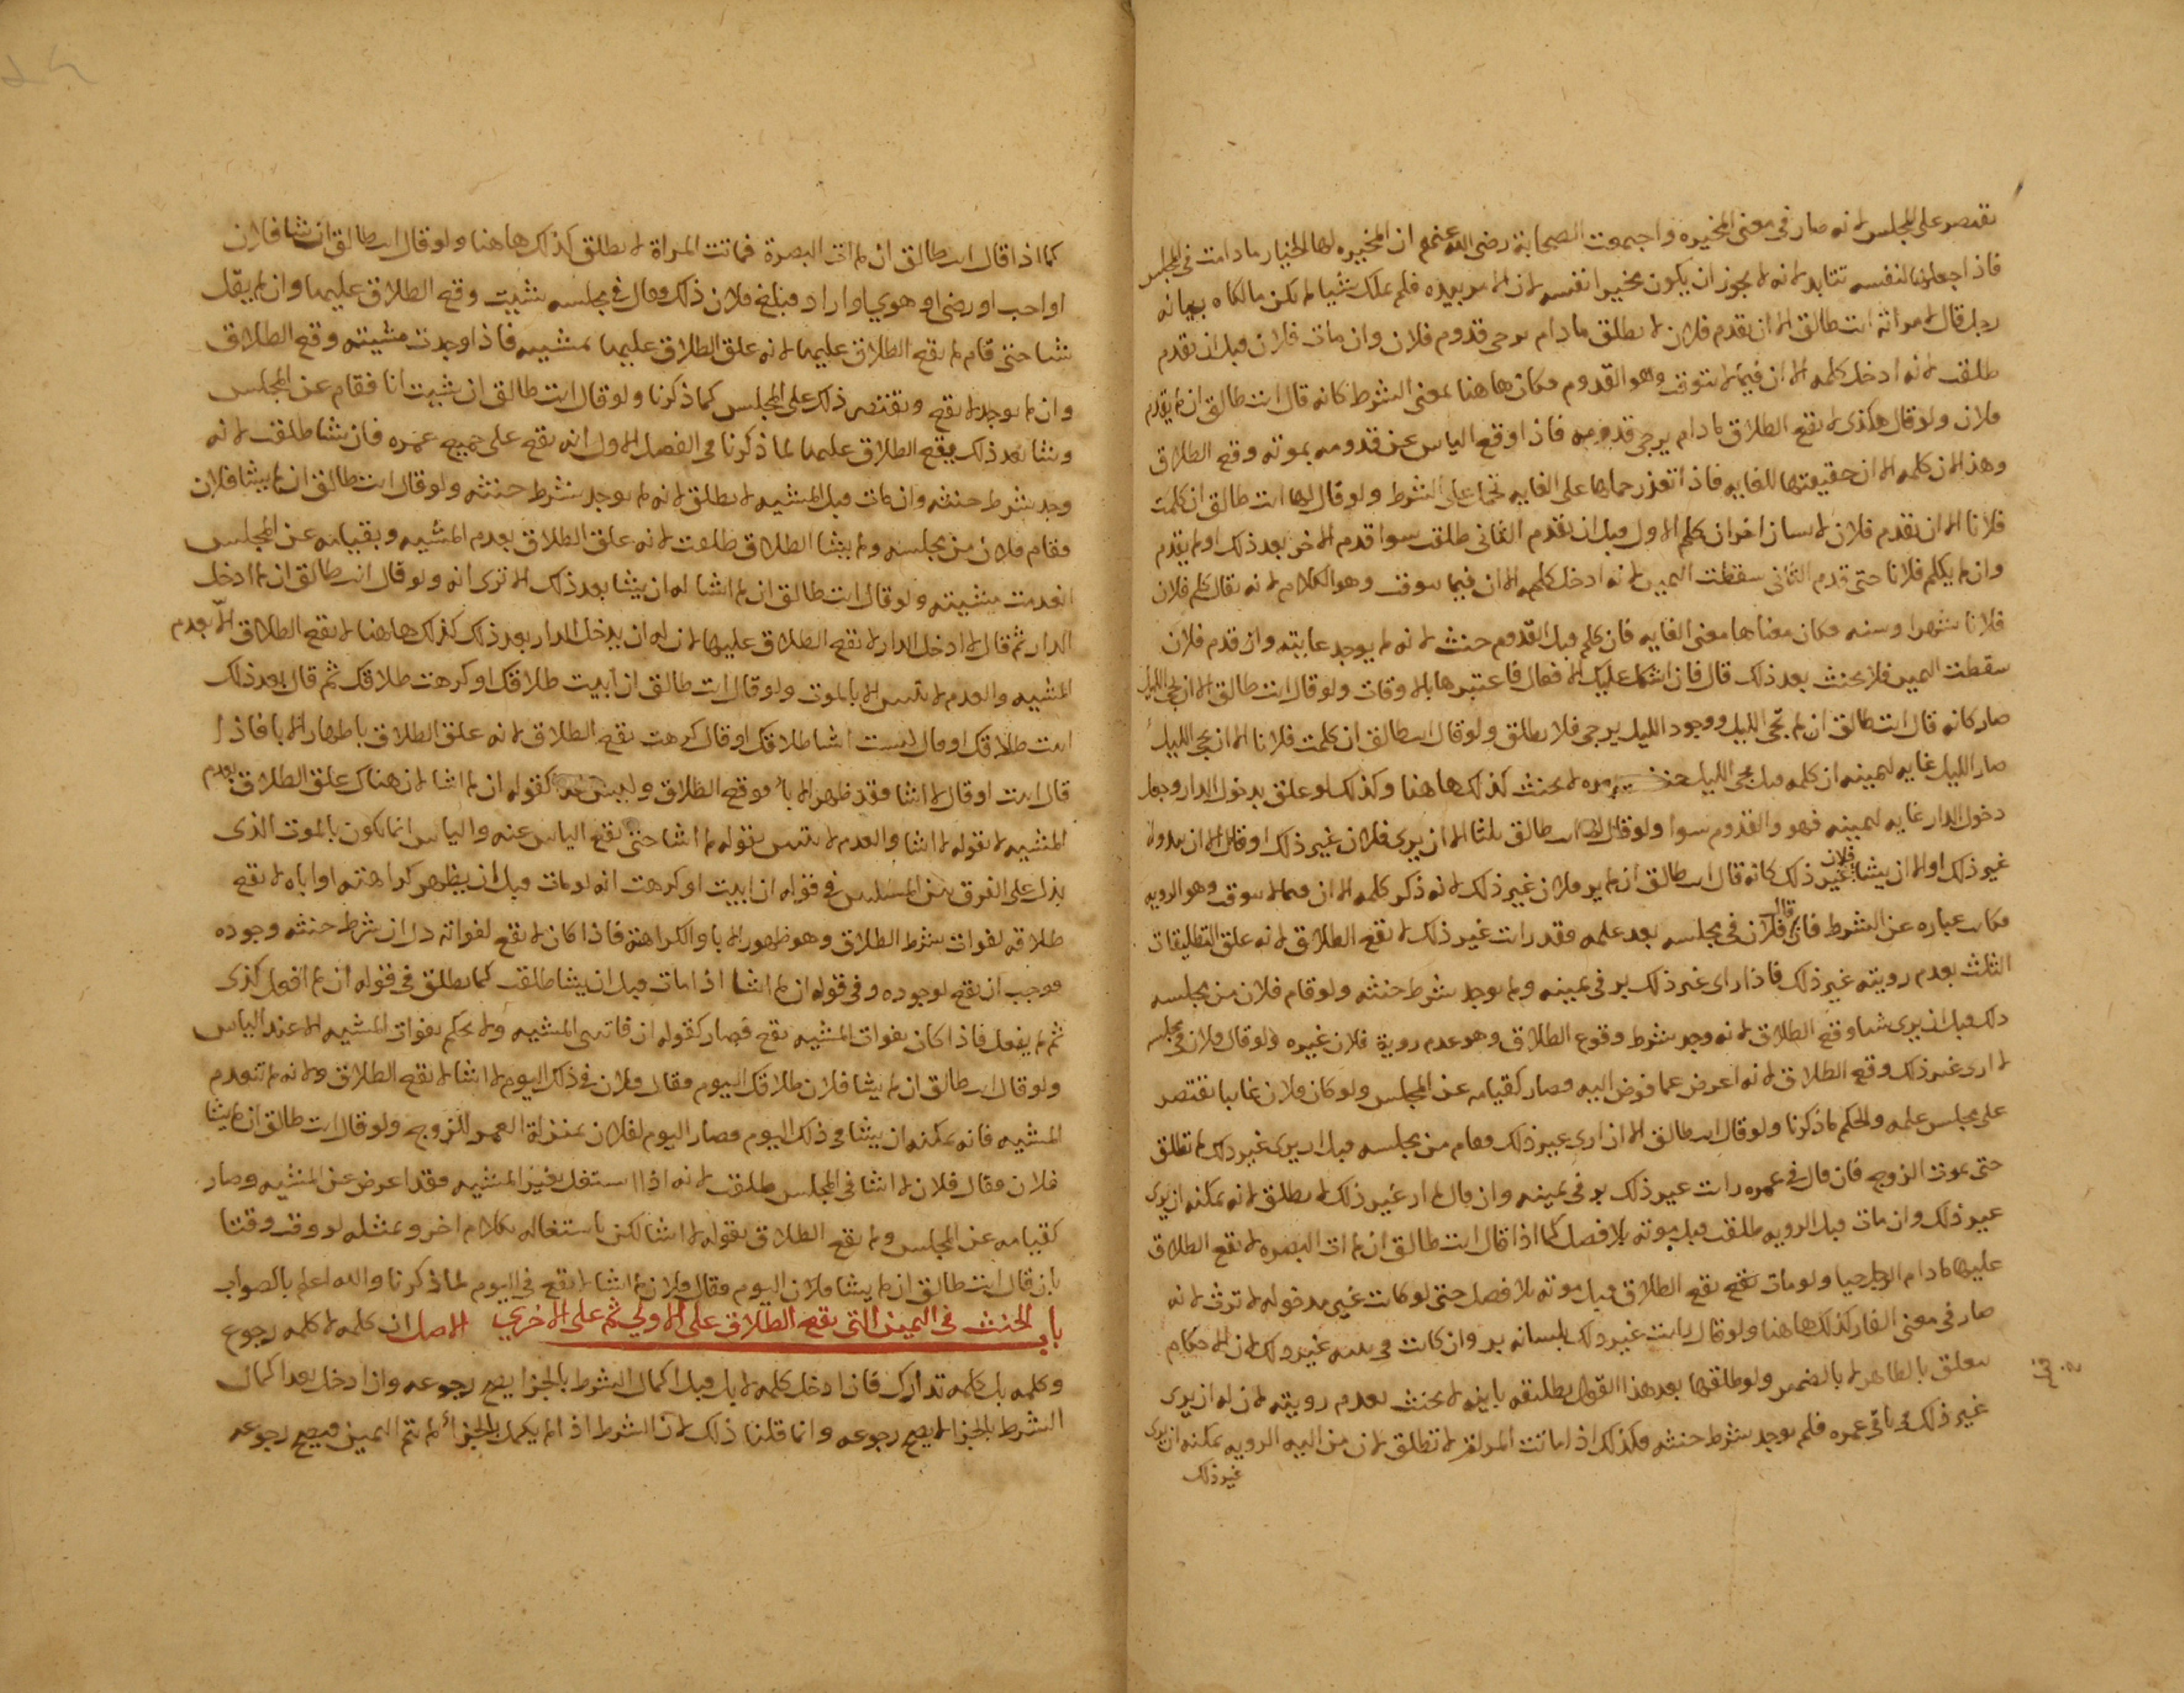 يقتصر على المجلس لانه صار في معنى المخيره واجمعت الصحابة رضى الله عنهم ان المخيره لها الخيار ما دامت في المجلس
فاذا جعلها لنفسه تتابد لانه لا يجوز ان يكون مخيرا نفسه لان الامر بيده فلم يملك شيا لم يكن مالكاه بيانه
رجل قال لامراته انت طالق الا ان يقدم فلان لا تطلق ما دام يرجى قدوم فلان وان مات فلان قبل ان يقدم
طلقت لانه ادخل كلمه الا ان فيما لا يتوقت وهو القدوم فكان هاهنا بمعنى الشرط كانه قال انت طالق ان لم يقدم
فلان ولو قال هكذى لا يقع الطلاق ما دام يرجى قدومه فاذا وقع الياس عن قدومه بموته وقع الطلاق
وهذا لان كلمه الا ان حقيقتها للغايه فاذا تعذر حملها على الغايه تحمل على الشرط ولو قال لها انت طالق ان كلمت
فلانا الا ان يقدم فلان لانسان اخر ان كلم الاول قبل ان يقدم الثانى طلقت سوا قدم الاخر بعد ذلك او لم يقدم
وان لم يكلم فلانا حتى قدم الثانى سقطت اليمين لانه ادخل كلمه الا ان فيما يتوقت وهو الكلام لانه يقال كلم فلان
فلانا شهرا وسنه فكان معناها معنى الغايه فان كلم قبل القدوم حنث لانه لم يوجد غايته وان قدم فلان
سقطت اليمين فلا يحنث بعد ذلك قال فان اشكل عليك الافعال فاعتبرها بالاوقات ولو قال انت طالق الا ان يجى الليل
صار كانه قال انت طالق ان لم يجى الليل ووجود الليل يرجى فلا تطلق ولو قال انت طالق ان كلمت فلانا الا ان يجى الليل
صار الليل غايه ليمينه ان كلمه قبل مجى الليل حنث لا يحنث كذلك هاهنا وكذلك لو علق بدخول الدار وجعل
دخول الدار غايه ليمينه فهو والقدوم سوا ولو قال لها انت طالق ثلثا الا ان يرى فلان غير ذلك او قال الا ان يبدو له
غير ذلك او الا ان يشا فلان غير ذلك كانه قال انت طالق ان لم ير فلان غير ذلك لانه ذكر كلمه الا ان فيما لا يتوقت وهو الرويه
فكانت عباره عن الشرط فان قال فلان في مجلسه بعد علمه قد رايت غير ذلك لا يقع الطلاق لانه علق التطليقات
الثلث بعدم رويته غير ذلك فاذا راى غير ذلك بر في يمينه ولم يوجد شرط حنثه ولو قام فلان من مجلسه
ذلك قبل ان يرى شيا وقع الطلاق لانه وجد شرط وقوع الطلاق وهو عدم روية فلان غيره ولو قال فلان في مجلسه
لا ارى غير ذلك وقع الطلاق لانه اعرض عما فوض اليه فصار كقيامه عن المجلس ولو كان فلان غايبا يقتصر
على مجلس علمه والحكم ما ذكرنا ولو قال انت طالق الا ان ارى غير ذلك فقام من مجلسه قبل ان يرى غير ذلك لم تطلق
حتى يموت الزوج فان قال في عمره رايت غير ذلك بر في يمينه وان قال لم ار غير ذلك لا تطلق لانه يمكنه ان يرى
غير ذلك وان مات قبل الرويه طلقت قبل موته بلا فصل كما اذا قال انت طالق ان لم ات البصره لا يقع الطلاق
عليها ما دام الرجل حيا ولو مات يقع الطلاق قبل موته بلا فصل حتى لو كانت غير مدخوله لا ترث لانه
صار في معنى الفار كذلك هاهنا ولو قال رايت غير ذلك بلسانه بر وان كانت في نيته غير ذلك لان الاحكام
تتعلق بالظاهر لا بالضمير ولو طلقها بعد هذا القول تطليقه باينه لا يحنث بعدم رويته لان له ان يرى
غير ذلك في باقى عمره فلم يوجد شرط حنثه وكذلك اذا ماتت المراة لا تطلق لان من اليه الرويه يمكنه ان يرى
غير ذلك
كما اذا قال انت طالق ان لم ات البصرة فماتت المراة لا تطلق كذلك هاهنا ولو قال انت طالق ان شا فلان
او احب او رضى او هوي او اراد فبلغ فلان ذلك وقال في مجلسه شيت وقع الطلاق عليها وان لم يقل
شيا حتى قام لم يقع الطلاق عليها لانه علق الطلاق عليها بمشيه فاذا وجدت مشيته وقع الطلاق
وان لم يوجد لا يقع ويقتصر ذلك على المجلس كما ذكرنا ولو قال انت طالق ان شيت انا فقام عن المجلس
وشا بعد ذلك يقع الطلاق عليها لما ذكرنا في الفصل الاول انه يقع على جميع عمره فان شا طلقت لانه
وجد شرط حنثه وان مات قبل المشيه لا تطلق لانه لم يوجد شرط حنثه ولو قال انت طالق ان لم يشا فلان
فقام فلان من مجلسه ولم يشا الطلاق طلقت لانه علق الطلاق بعدم المشيه وبقيامه عن المجلس
انعدمت مشيته ولو قال انت طالق ان لم اشا له ان يشا بعد ذلك الا ترى انه ولو قال انت طالق ان لم ادخل
الدار ثم قال لا ادخل الدار لا يقع الطلاق عليها لان له ان يدخل الدار بعد ذلك كذلك هاهنا لا يقع الطلاق الا بعدم
المشيه والعدم لا يتبين الا بالموت ولو قال انت طالق ان ابيت طلاقك او كرهت طلاقك ثم قال بعد ذلك
ابيت طلاقك او قال لست اشا طلاقك او قال كرهت يقع الطلاق لانه علق الطلاق باظهار الابا فاذا
قال ابيت او قال لا اشا فقد ظهر الابا فوقع الطلاق وليس كقوله ان لم اشا لان هناك علق الطلاق بعدم
المشيه لا بقوله لا اشا والعدم لا يتبين بقوله لم اشا حتى يقع الياس عنه والياس انما يكون بالموت الذى
يدل على الفرق بين المسلتين في قوله ان ابيت او كرهت انه لو مات قبل ان يظهر كراهته او اباه لا يقع
طلاقه لفوات شرط الطلاق وهو ظهور الابا والكراهة فاذا كان لا يقع لفواته دل ان شرط حنثه وجوده
فوجب ان يقع لوجوده وفي قوله ان لم اشا اذا مات قبل ان يشا طلقت كما تطلق في قوله ان لم افعل كذى
ثم لم يفعل فاذا كان بفوات المشيه يقع فصار كقوله ان فاتنى المشيه ولا يحكم بفوات المشيه الا عند الياس
ولو قال انت طالق ان لم يشا فلان طلاقك اليوم فقال فلان في ذلك اليوم لا اشا لا يقع الطلاق لانه لم تنعدم
المشيه فانه يمكنه ان يشا في ذلك اليوم فصار اليوم لفلان بمنزلة العمر للزوج ولو قال انت طالق ان لم يشا
فلان فقال فلان لا اشا في المجلس طلقت لانه اذا اشتغل بغير المشيه فقد اعرض عن المشيه وصار
كقيامه عن المجلس ولم يقع الطلاق بقوله لا اشا لكن باشتغاله بكلام اخر وبمثله لو وقت وقتا
بان قال انت طالق ان لم يشا فلان اليوم فقال فلان لا اشا لا يقع في اليوم لما ذكرنا والله اعلم بالصواب
باب الحنث في اليمين التى يقع الطلاق على الاولي ثم على الاخري الاصل ان كلمه لا كلمه رجوع
وكلمه بل كلمه تدارك فاذا دخل كلمه لا بل قبل اكمال الشرط بالجزا يصح رجوعه وان ادخل بعد اكمال
الشرط بالجزا لا يصح رجوعه وانما قلنا ذلك لان الشرط اذا لم يكمل بالجزا لم تتم اليمين فيصح رجوعه